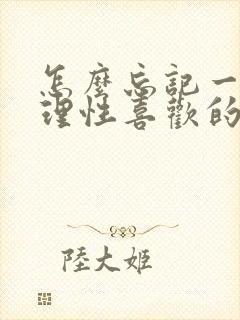 怎麼忘記一
理性喜歡的
陸大姬